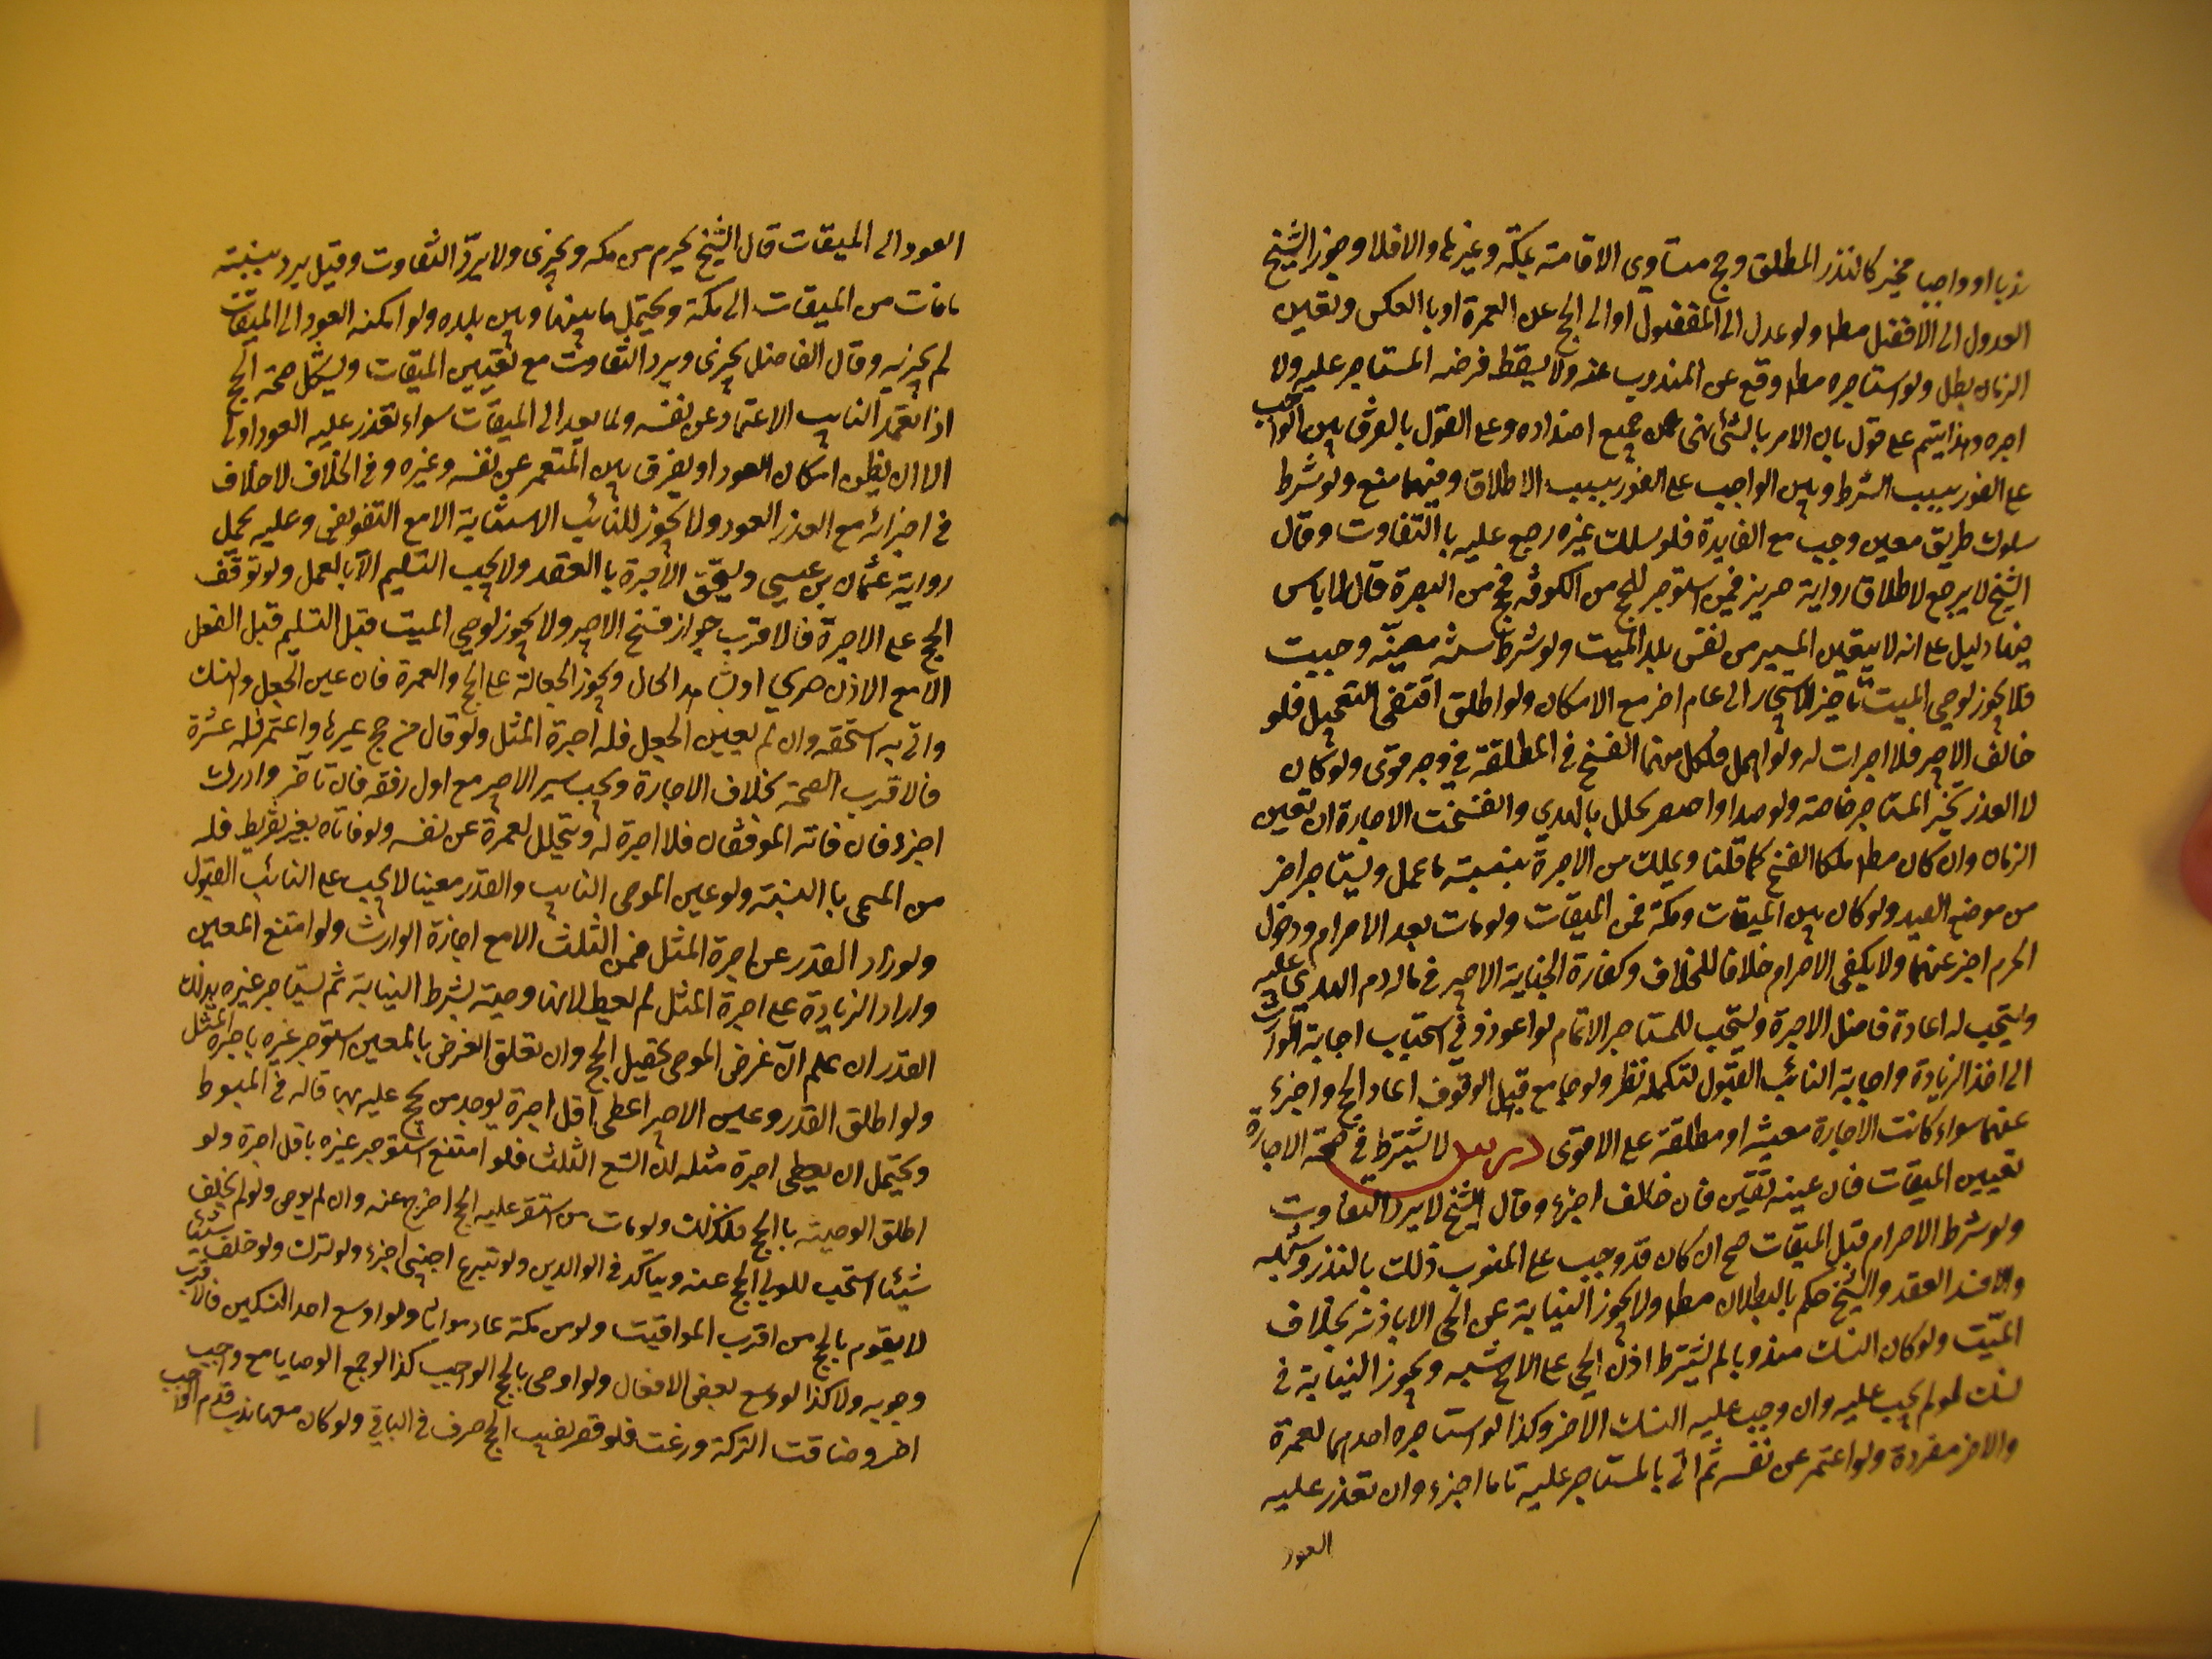 ندبا او واجبا مخير كالنذر المطلق وحج متساوى الاقامة بمكة وغيرها والا فلا وجوز الشيخ
العدول الى الافضل مطا ولو عدل الى المفضول او الى الحج عن العمرة او بالعكس وتعين
الزمان بطل ولو استاجره مطا وقع عن المندوب عنه ولا يسقط فرضه المستاجر عليه ولا
اجره وهذا يتم على قول بان الامر بالشئ نهى عن جميع اضداده وعلى القول بالفرق بين الواجب
على الفور بسبب الشرط وبين الواجب على الفور بسبب الاطلاق وفيهما منع ولو شرط
سلوك طريق معين وجب مع الفايدة فلو سلك غيره رجع عليه بالتفاوت وقال
الشيخ لا يرجع لاطلاق رواية حريز فيمن استوجر للحج من الكوفه فحج من البصرة قال لا باس
فيها دليل على انه لا يتعين المسير من نفس بلد الميت ولو شرط سنة معينه وجبت
فلا يجوز لوصى الميت تاخير الاستيجار الى عام اخر مع الامكان ولو اطلق اقتضى التعجيل فلو
خالف الاجير فلا اجرات له ولو اهمل فلكل منهما الفسخ فى المطلقة فى وجه قوى ولو كان
لا العذر تخير المستاجر خاصة ولو صد او احصر تحلل بالهدي وانفسخت الاجارة ان تعين
الزمان وان كان مطا ملكا الفسخ كما قلنا ويملك من الاجرة بنسبة ما عمل ويستاجر اخر
من موضع الصد ولو كان بين الميقات ومكة فمن الميقات ولو مات بعد الاحرام ودخول
الحرم اجزء عنهما ولا يكفى الاحرام خلافا للخلاف وكفارة الجناية الاجير فى ماله دم الهدي عليه
ويستحب له اعادة فاضل الاجرة ويستحب للمستاجر الاتمام لو اعوز وفى استحباب اجابة الوارث
الى اخذ الزيادة واجابة النائب القبول لتكمله نظر ولو جامع قبل الوقوف اعاد الحج واجزء
عنهما سواء كانت الاجارة معينة او مطلقة على الاقوى درس لا يشترط فى صحة الاجارة
تعيين الميقات فان عينه تعين فان خالف اجزء وقال الشيخ لا يرد التفاوت
ولو شرط الاحرام قبل الميقات صح ان كان قد وجب على المنوب ذلك بالنذر وشبهه
والا فسد العقد والشيخ حكم بالبطلان مطا ولا يجوز النيابة عن الحى الا باذنه بخلاف
الميت ولو كان النسك مندوبا لم يشترط اذن الحى على الاشبه ويجوز النيابة فى
نسك لم يجب عليه وان وجب عليه النسك الاخر وكذا لو استاجره احدهما لعمرة
والاخر مفردة ولو اعتمر عن نفسه ثم اتى بالمستاجر عليه تاما اجزء وان تعذر عليه
العود
العود الى الميقات قال الشيخ يحرم من مكه ويجزى ولا يرد التفاوت وقيل يرد بنسبة
ما فات من الميقات الى مكة ويحتمل ما بينها وبين بلده ولو امكنه العود الى الميقات
لم يجزيه وقال الفاضل يجزى ويرد التفاوت مع تعيين الميقات ويشكل صحة الحج
اذا تعمد النايب الاعتماد عن نفسه ولما يعد الى الميقات سواء تعذر عليه العود اولا
الا ان يظن امكان العود او يفرق بين المتعمر عن نفسه وغيره وفى الخلاف لا خلاف
فى اجزائه مع العذر العود ولا يجوز للنائب الاستنابة الا مع التفويض وعليه يحمل
رواية عثمان بن عيسى ويستحق الاجرة بالعقد ولا يجب التسليم الا بالعمل ولو توقف
الحج على الاجرة فالاقرب جواز فسخ الاجير ولا يجوز لوصى الميت قبل التسليم قبل الفعل
الا مع الاذن صريحا او بشاهد الحال ويجوز الجعالة على الحج والعمرة فان عين الجعل والنسك
واتى به استحقه وان لم يعين الجعل فله اجرة المثل ولو قال من حج عنى او اعتمر فله عشرة
فالاقرب الصحة بخلاف الاجارة ويجب سير الاجير مع اول رفقه فان تاخر وادرك
اجزء فان فاته الموقفان فلا اجرة له ويتحلل بعمرة عن نفسه ولو فاتاه بغير تفريط فله
من المسمى بالنسبة ولو عين الموصى النايب والقدر معينا لا يجب على النائب القبول
ولو زاد القدر عن اجرة المثل فمن الثلث الا مع اجازة الوارث ولو امتنع المعين
واراد الزيادة على اجرة المثل لم يعط لانها وصية بشرط النيابة ثم يستاجر غيره بذلك
القدر ان علم ان غرض الموصى تحصيل الحج وان تعلق الغرض بالمعين استوجر غيره باجرة المثل
ولو اطلق القدر وعين الاجير اعطى اقل اجرة يوجد من يحج عليه بها قاله فى المبسوط
ويحتمل ان يعطى اجرة مثله ان اتسع الثلث فلو امتنع استوجر غيره باقل اجرة ولو
اطلق الوصية بالحج فكذلك ولو مات من استقر عليه الحج اخرج عنه وان لم يوص ولو لم يخلف
شيئا استحب للولى الحج عنه ويتاكد فى الوالدين ولو تبرع اجنبى اجزء ولو ترك ولو خلف شيئا
لا يقوم بالحج من اقرب المواقيت ولو من مكة عاد ميراثا ولو اوسع احد النسكين فالاقرب
وجوبه ولا كذا لو وسع بعض الافعال ولو اوصى بالحج الواجب كذا لو جمع الوصايا مع واجب
اخر وضاقت التركة وزعت فلو قصر نصيب الحج صرف فى الباقى ولو كان معها ندب قدم الواجب